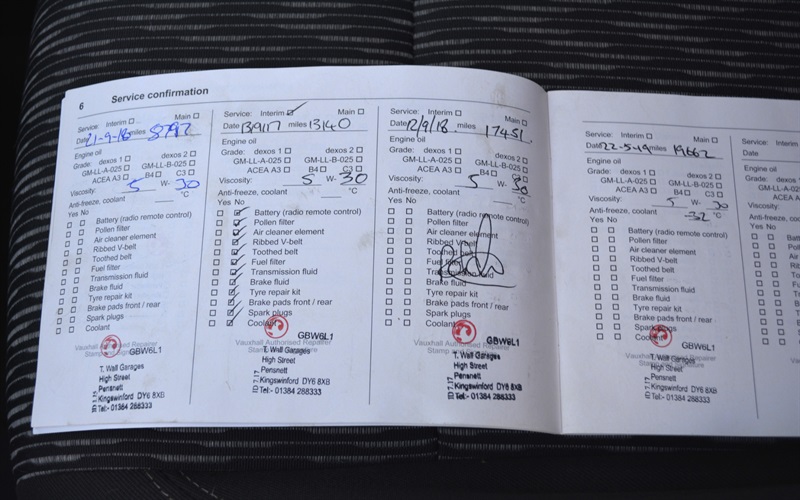 6 Service confirmation
Service: Interim Main
Date miles 8797
Engine oil
Grade: dexos 1 dexos 2
GM-LL-A-025 GM-LL-B-025
ACEA A3 B4 C3
Viscosity: 5 W- 30
Anti-freeze, coolant °C
Yes No
Battery (radio remote control)
Pollen filter
Air cleaner element
Ribbed V-belt
Toothed belt
Fuel filter
Transmission fluid
Brake fluid
Tyre repair kit
Brake pads front / rear
Spark plugs
Coolant
Vauxhall Authorised Repairer
GBW6L1
T. Wall Garages
High Street
Pensnett
Kingswinford DY6 8XB
Tel:- 01384 288333
Service: Interim Main
Date miles 13140
Engine oil
Grade: dexos 1 dexos 2
GM-LL-A-025 GM-LL-B-025
ACEA A3 B4 C3
Viscosity: 5 W- 30
Anti-freeze, coolant °C
Yes No
Battery (radio remote control)
Pollen filter
Air cleaner element
Ribbed V-belt
Toothed belt
Fuel filter
Transmission fluid
Brake fluid
Tyre repair kit
Brake pads front / rear
Spark plugs
Coolant
Vauxhall Authorised Repairer
GBW6L1
T. Wall Garages
High Street
Pensnett
Kingswinford DY6 8XB
Tel:- 01384 288333
Service: Interim Main
Date 12/9/18 miles 17451
Engine oil
Grade: dexos 1 dexos 2
GM-LL-A-025 GM-LL-B-025
ACEA A3 B4 C3
Viscosity: 5 W- 30
Anti-freeze, coolant °C
Yes No
Battery (radio remote control)
Pollen filter
Air cleaner element
Ribbed V-belt
Toothed belt
Fuel filter
Transmission fluid
Brake fluid
Tyre repair kit
Brake pads front / rear
Spark plugs
Coolant
Vauxhall Authorised Repairer
GBW6L1
T. Wall Garages
High Street
Pensnett
Kingswinford DY6 8XB
Tel:- 01384 288333
Service: Interim Main
Date 22-5-19 miles 19662
Engine oil
Grade: dexos 1 dexos 2
GM-LL-A-025 GM-LL-B-025
ACEA A3 B4 C3
Viscosity: 5 W- 30
Anti-freeze, coolant -32 °C
Yes No
Battery (radio remote control)
Pollen filter
Air cleaner element
Ribbed V-belt
Toothed belt
Fuel filter
Transmission fluid
Brake fluid
Tyre repair kit
Brake pads front / rear
Spark plugs
Coolant
Vauxhall Authorised Repairer
GBW6L1
T. Wall Garages
High Street
Pensnett
Kingswinford DY6 8XB
Tel:- 01384 288333
Service: Interim
Date
Engine oil
Grade:
GM-LL-A
Viscosity:
Anti-freeze,
Yes No